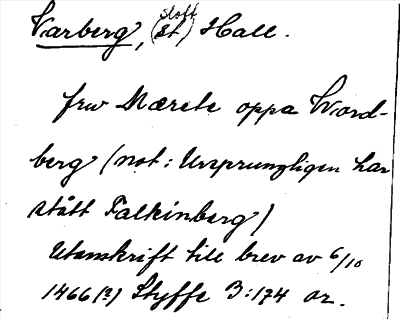 Varberg, (slott, st) Hall.
frw Mærete oppa Word-
berg (not: Ursprungligen har
stått Falkinberg)
Utanskrift till brev av 6/10
1466 (?) Styffe 3:174 or.